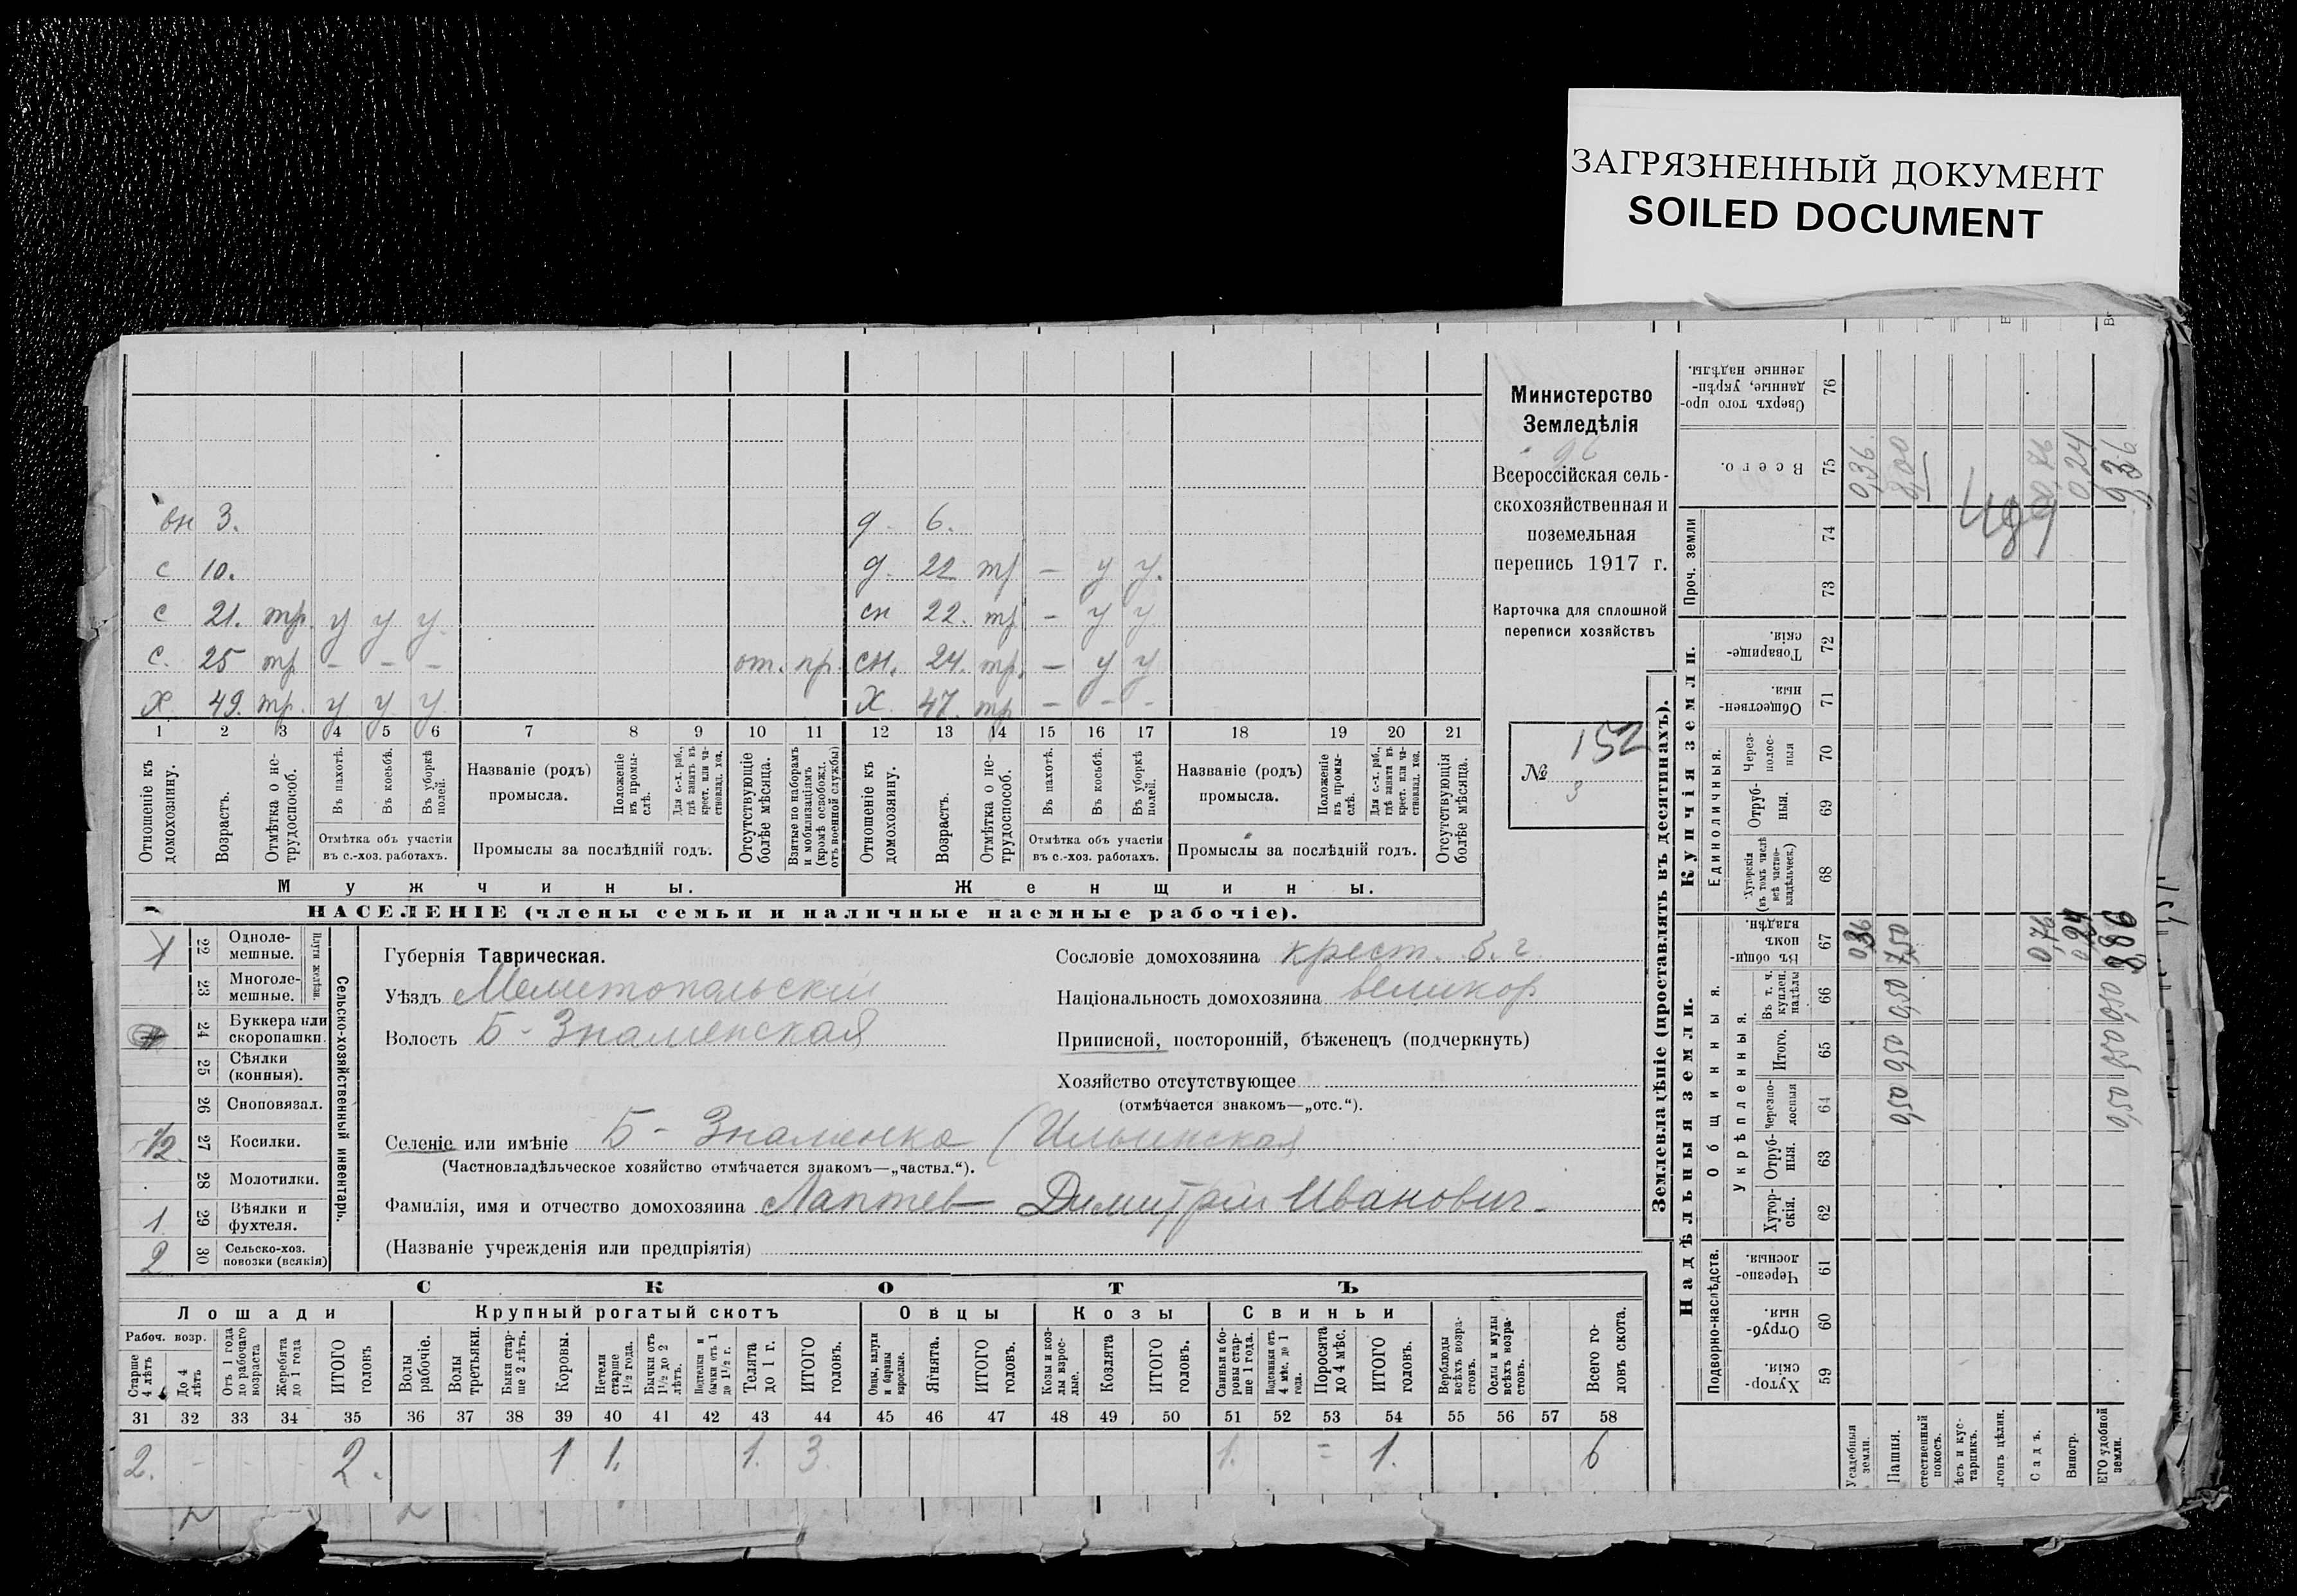 ЗАГРЯЗНЕННЫЙ ДОКУМЕНТ
SOILED DOCUMENT
вн 3. д. 6.
с 10. д. 22 тр — у у.
с 21. тр. у у у. сн 22. тр — у у
с. 25 тр — — — от. пр. сн. 24. тр. — у у
Х. 49. тр. у у у. Х. 47. тр — - -
1 2 3 4 5 6 7 8 9 10 11 12 13 14 15 16 17 18 19 20 21
Отношеніе къ домохозяину.
Возрастъ.
Отмѣтка о нетрудоспособ.
Въ пахотѣ.
Въ косьбѣ.
Въ уборкѣ полей.
Отмѣтка объ участіи
въ с.-хоз. работахъ.
Названіе (родъ)
промысла.
Положеніе въ промыслѣ.
Для с.-х. раб., гдѣ занятъ въ крест. или частновлад. хоз.
Промыслы за послѣдній годъ.
Отсутствующіе болѣе мѣсяца.
Взятые по наборамъ и мобилизаціямъ (кромѣ освобожд. отъ военной службы)
Отношеніе къ домохозяину.
Возрастъ.
Отмѣтка о нетрудоспособ.
Въ пахотѣ.
Въ косьбѣ.
Въ уборкѣ полей.
Отмѣтка объ участіи
въ с.-хоз. работахъ.
Названіе (родъ)
промысла.
Положеніе въ промыслѣ.
Для с.-х. раб., гдѣ занята въ крест. или частновлад. хоз.
Промыслы за послѣдній годъ.
Отсутствующія болѣе мѣсяца.
Мужчины. Женщины.
НАСЕЛЕНІЕ (члены семьи и наличные наемные рабочіе).
Министерство
Земледѣлія
Всероссійская сель-
скохозяйственная и
поземельная
перепись 1917 г.
Карточка для сплошной
переписи хозяйствъ
№ 152
3
22 Одноле-
мешные.
23 Многоле-
мешные.
Плуги желѣзн.
24 Буккера или
скоропашки.
25 Сѣялки
(конныя).
26 Сноповязал.
1/2 27 Косилки.
28 Молотилки.
1 29 Вѣялки и
фухтеля.
2 30 Сельско-хоз.
повозки (всякія)
Сельско-хозяйственный инвентарь.
Губернія Таврическая.
Уѣздъ Мелитопольскій
Волость Б - Знаменская
Селеніе или имѣніе Б - Знаменка (Ильинская
(Частновладѣльческое хозяйство отмѣчается знакомъ—„частвл.“).
Фамилія, имя и отчество домохозяина Лаптев Димитрій Иванович.
(Названіе учрежденія или предпріятія)
Сословіе домохозяина крест. б. г.
Національность домохозяина великор
Приписной, посторонній, бѣженецъ (подчеркнуть)
Хозяйство отсутствующее
(отмѣчается знакомъ—„отс.“).
СКОТЪ
Лошади Крупный рогатый скотъ Овцы Козы Свиньи
Рабоч. возр.
Старше 4 лѣтъ
До 4 лѣтъ
Отъ 1 года до рабочаго возраста
Жеребята до 1 года
ИТОГО головъ
Волы рабочіе.
Волы третьяки.
Быки старше 2 лѣтъ.
Коровы.
Нетели старше 1½ года.
Бычки отъ 1½ до 2 лѣтъ.
Подтелки и бычки отъ 1 до 1½ г.
Телята до 1 г.
ИТОГО головъ.
Овцы, валухи и бараны взрослые.
Ягнята.
ИТОГО головъ.
Козы и козлы взрослые.
Козлята
ИТОГО головъ.
Свиньи и боровы старше 1 года.
Подсвинки отъ 4 мѣс. до 1 года.
Поросята до 4 мѣс.
ИТОГО головъ.
Верблюды всѣхъ возрастовъ.
Ослы и мулы всѣхъ возрастовъ.
Всего головъ скота.
31 32 33 34 35 36 37 38 39 40 41 42 43 44 45 46 47 48 49 50 51 52 53 54 55 56 57 58
2. - - - 2. 1 1. 1. 3 1. = 1. 6
Землевладѣніе (проставлять въ десятинахъ).
Надѣльныя земли. Купчія земли. Проч. земли
Подворно-наслѣдств.
Общинныя.
Укрѣпленныя.
Единоличныя.
Хуторскія. 59
Отрубныя. 60
Черезполосныя. 61
Хуторскія. 62
Отрубныя. 63
Черезполосныя 64
Итого. 65
Въ т. ч. куплен. надѣлы 66
Въ общинномъ владѣн. 67
Хуторскія (въ томъ числѣ всѣ частновладѣльческ.) 68
Отрубныя. 69
Черезполосныя 70
Общественныя. 71
Товарищескія. 72
73
74
Всего. 75
Сверхъ того проданные, укрѣпленные надѣлы. 76
Усадебныя земли. 0,36 0,36.
Пашня. 0,50 0,50 0,50 7,50 8,00
стественный покосъ.
ѣсъ и кустарникъ.
ыгонъ цѣлин.
Садъ. 0,76 0,76
Виногр. 0,24 0,24
ЕГО удобной земли. 0,50 0,50 0,50 8,86 9,36
2 2